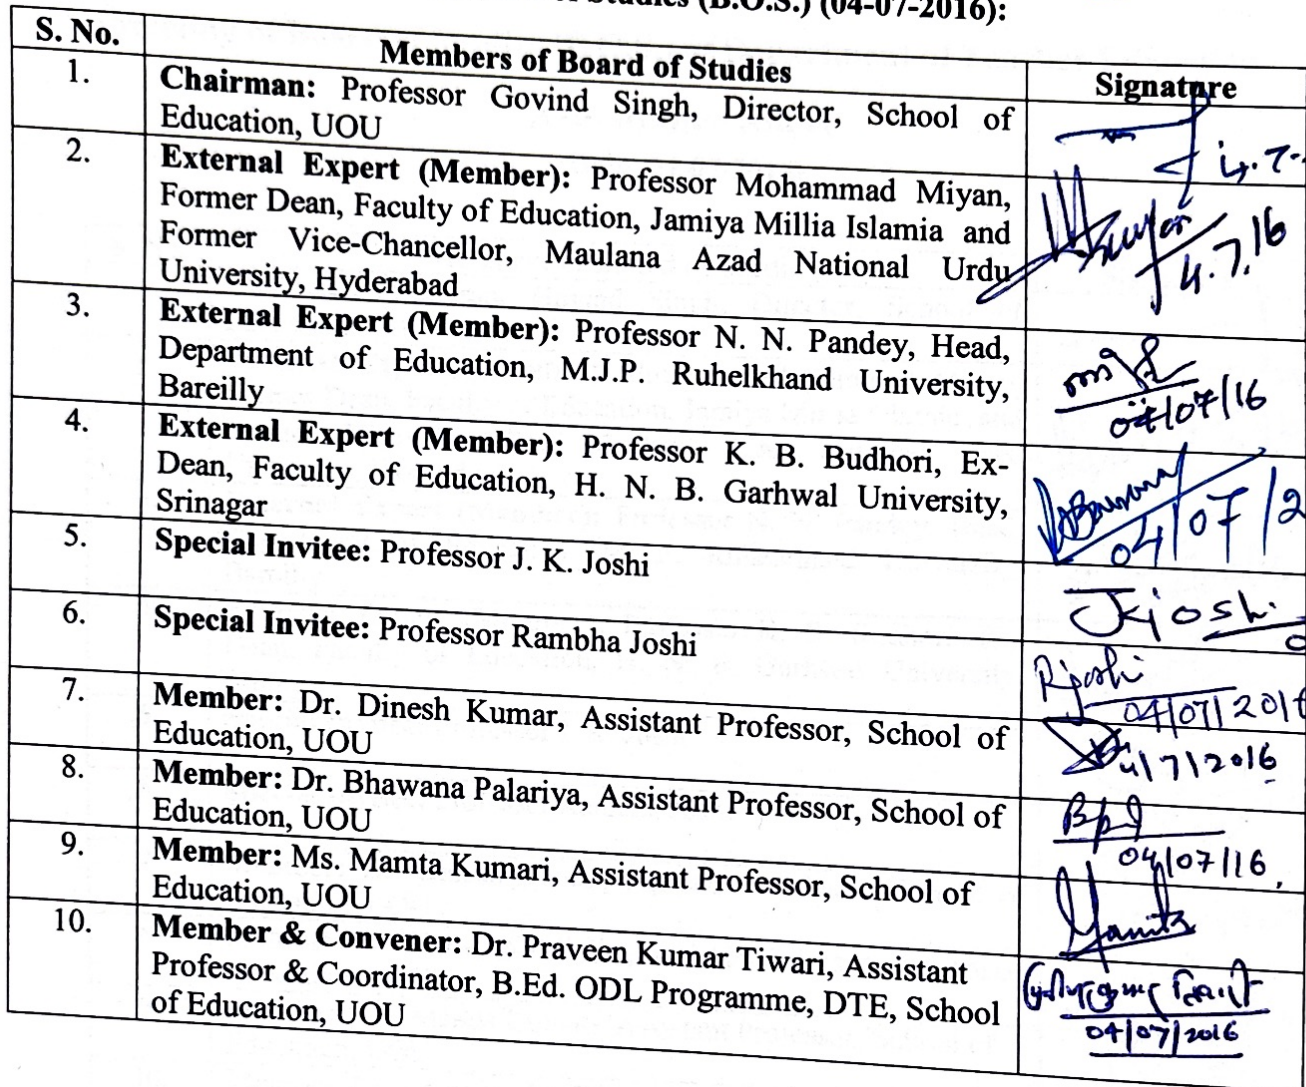 Studies (B.O.S.) (04-07-2016):
S. No. Members of Board of Studies Signature
1. Chairman: Professor Govind Singh, Director, School of
Education, UOU
4.7.
2. External Expert (Member): Professor Mohammad Miyan,
Former Dean, Faculty of Education, Jamiya Millia Islamia and
Former Vice-Chancellor, Maulana Azad National Urdu
University, Hyderabad
4.7.16
3. External Expert (Member): Professor N. N. Pandey, Head,
Department of Education, M.J.P. Ruhelkhand University,
Bareilly
04/07/16
4. External Expert (Member): Professor K. B. Budhori, Ex-
Dean, Faculty of Education, H. N. B. Garhwal University,
Srinagar
04/07/2
5. Special Invitee: Professor J. K. Joshi
JKJoshi
6. Special Invitee: Professor Rambha Joshi
RJoshi
04/07/2016
7. Member: Dr. Dinesh Kumar, Assistant Professor, School of
Education, UOU
4/7/2016
8. Member: Dr. Bhawana Palariya, Assistant Professor, School of
Education, UOU
04/07/16
9. Member: Ms. Mamta Kumari, Assistant Professor, School of
Education, UOU
Mamta
10. Member & Convener: Dr. Praveen Kumar Tiwari, Assistant
Professor & Coordinator, B.Ed. ODL Programme, DTE, School
of Education, UOU
04/07/2016